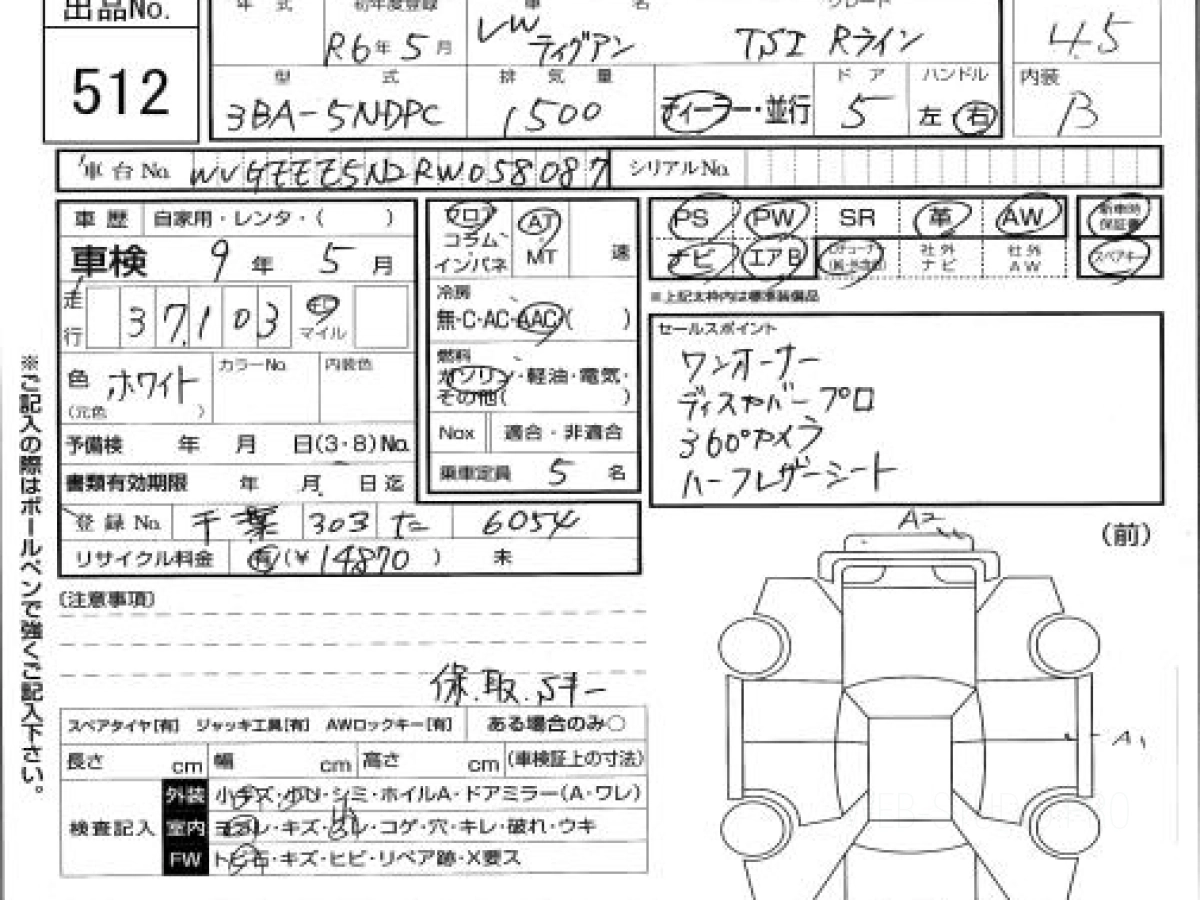 出品No.
年 式 初年度登録 車 名 グレード
512
R6年 5月 VW ティグアン TSI Rライン 4.5
型 式 排 気 量 ドア ハンドル 内装
3BA-5NDPC 1500 ディーラー・並行 5 左 右 B
車台No. WVGZZZ5NZRW058087 シリアルNo.
車 歴 自家用・レンタ・( )
車検 9年 5月
走行 37,103 マイル
色 ホワイト カラーNo. 内装色
(元色 )
予備検 年 月 日(3・8)No.
書類有効期限 年 月 日迄
登録No. 千葉 303 た 6054
リサイクル料金 有(¥ 14870 ) 未
フロア AT
コラム
インパネ MT 速
冷房
無・C・AC・AAC( )
燃料
ガソリン・軽油・電気・
その他( )
Nox 適合・非適合
乗車定員 5 名
PS PW SR 革 AW 新車時保証書
ナビ エアB 社外ナビ 社外AW スペアキー
※上記太枠内は標準装備品
セールスポイント
ワンオーナー
ディスカバープロ
360°カメラ
ハーフレザーシート
※ご記入の際はボールペンで強くご記入下さい。
(注意事項)
保.取.Sキー
スペアタイヤ[有] ジャッキ工具[有] AWロックキー[有] ある場合のみ○
長さ cm 幅 cm 高さ cm (車検証上の寸法)
検査記入
外装 小キズ・少U・シミ・ホイルA・ドアミラー(A・ワレ)
室内 ヨゴレ・キズ・スレ・コゲ・穴・キレ・破れ・ウキ
FW トビ石・キズ・ヒビ・リペア跡・X要ス
A2
(前)
A1